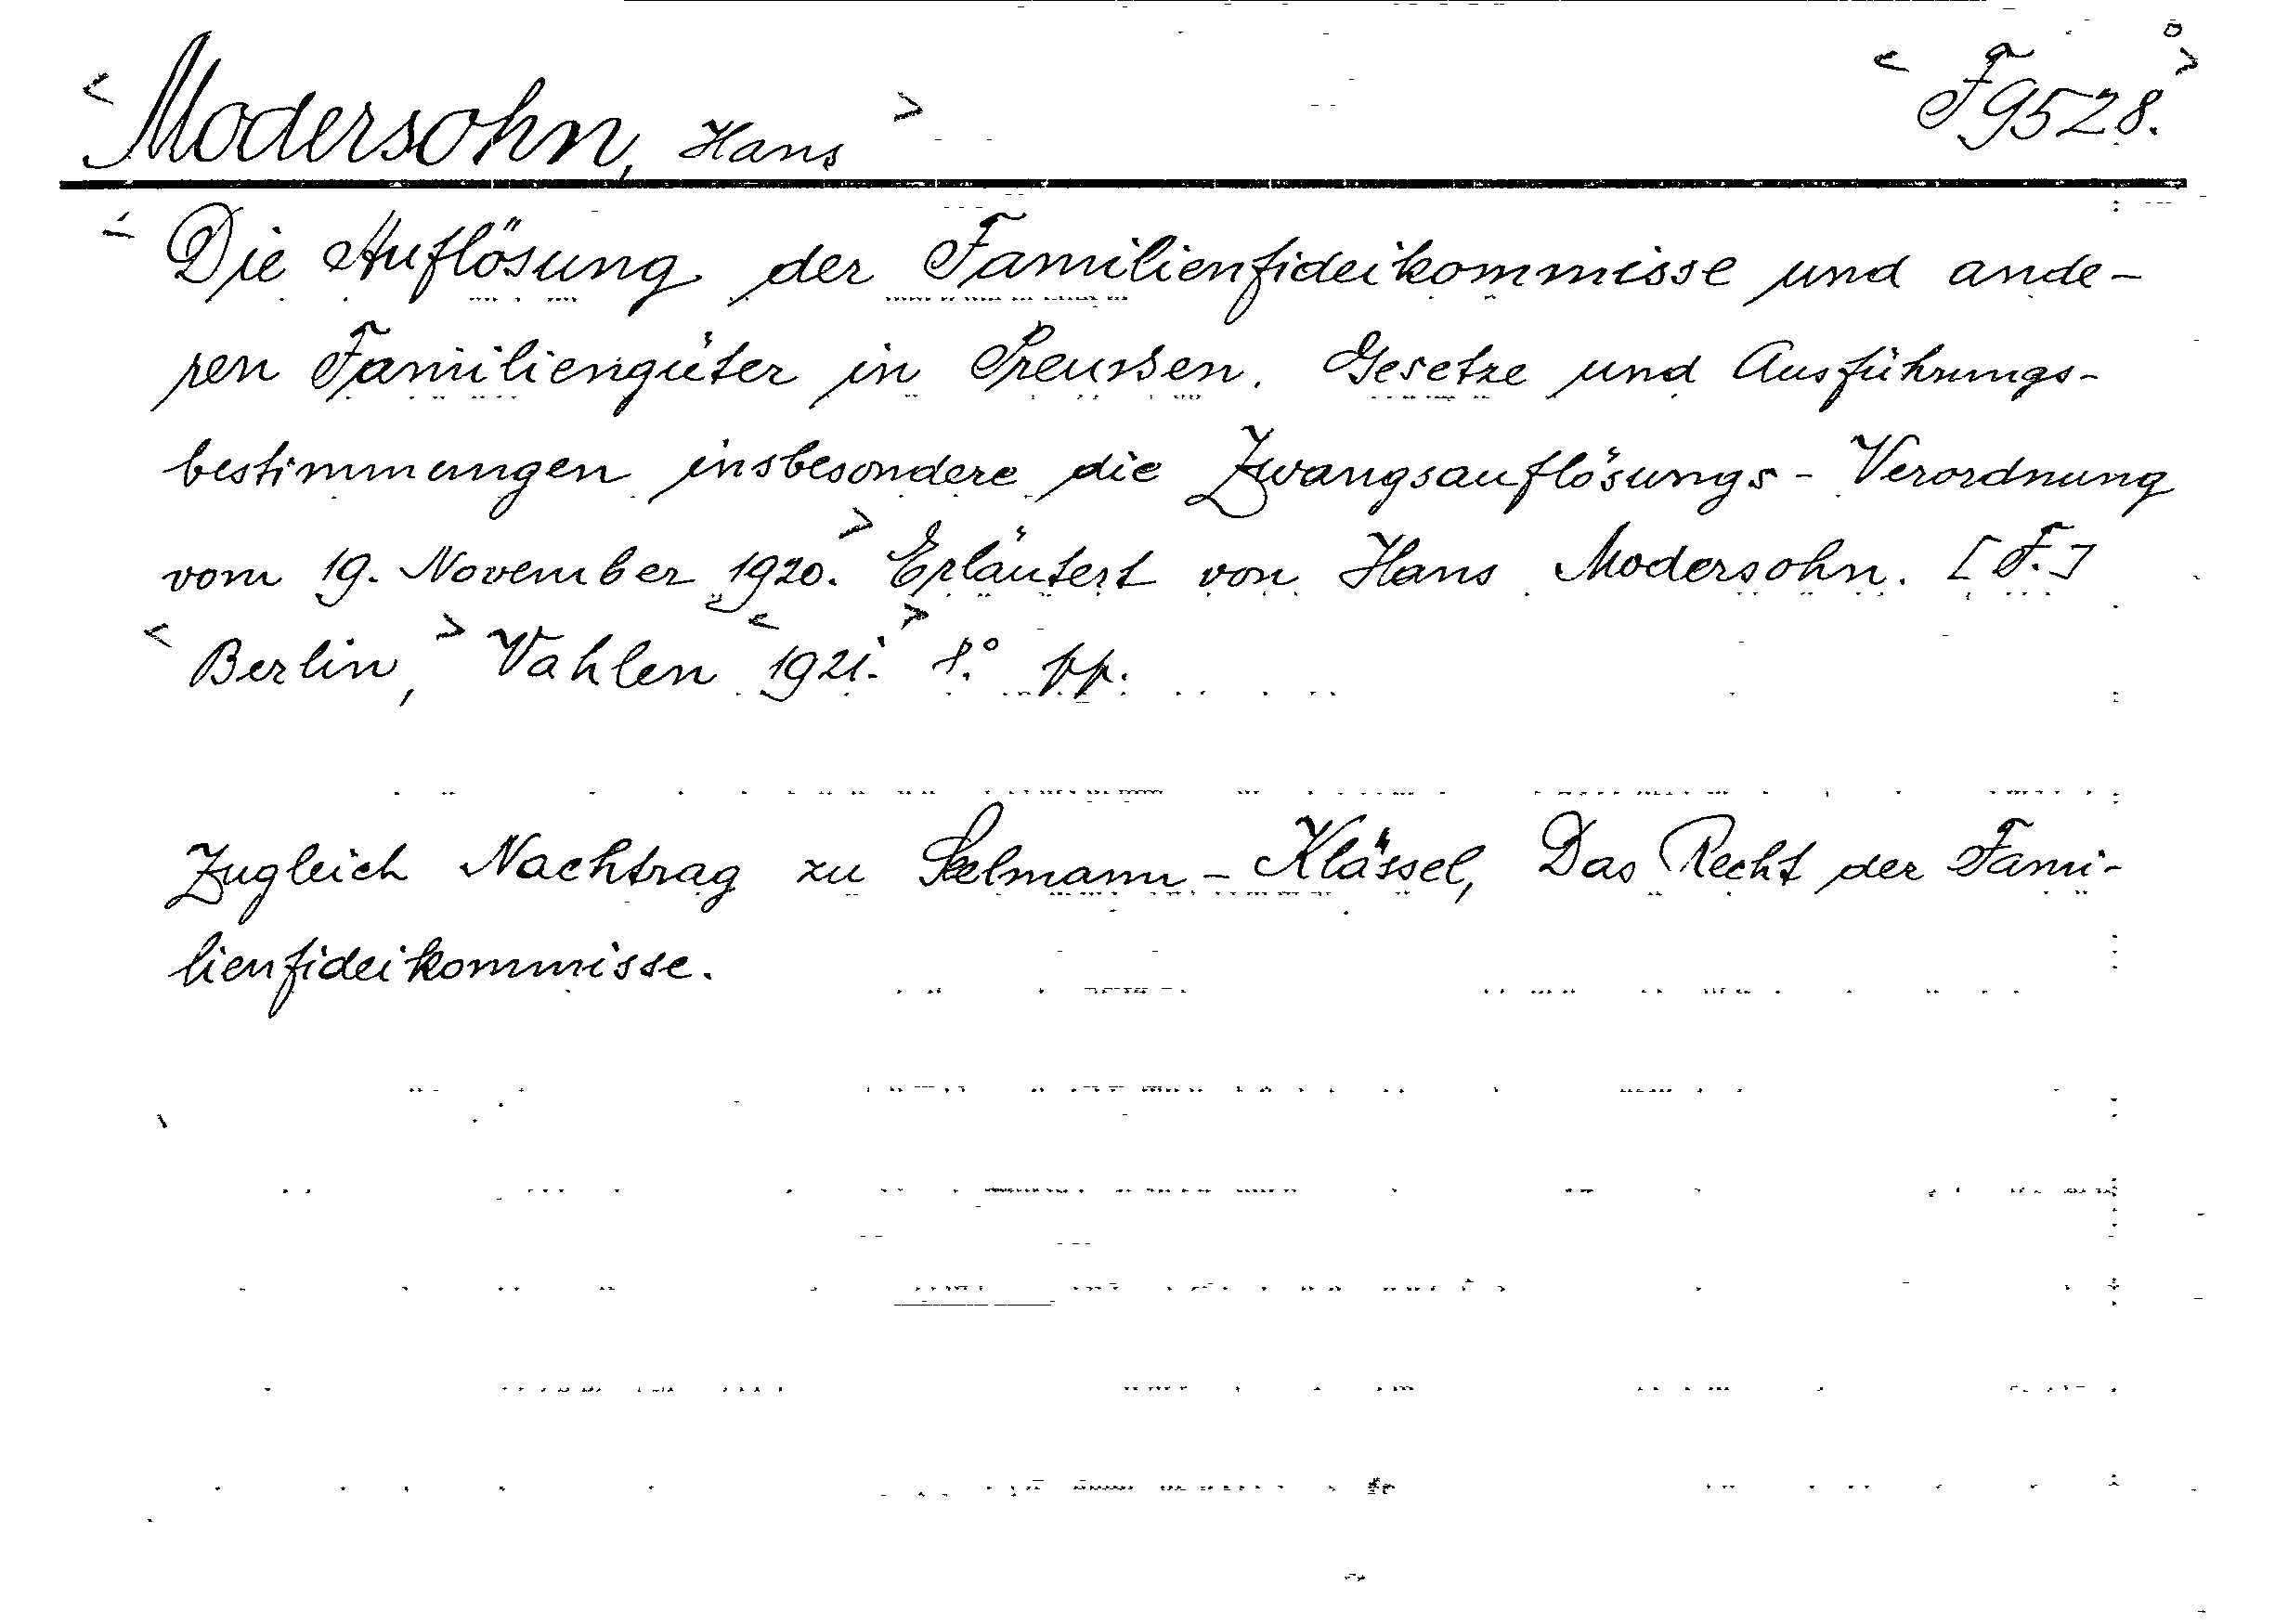 < Modersohn, Hans > < F 9528. >
Die Auflösung der Familienfideikommisse und ande-
ren Familiengüter in Preussen. Gesetze und Ausführungs-
bestimmungen insbesondere die Zwangsauflösungs-Verordnung
vom 19. November 1920. > Erläutert von Hans Modersohn. [F.]
< Berlin, > Vahlen < 1921. > 8.° pp.
Zugleich Nachtrag zu Seelmann-Klässel, Das Recht der Fami-
lienfideikommisse.